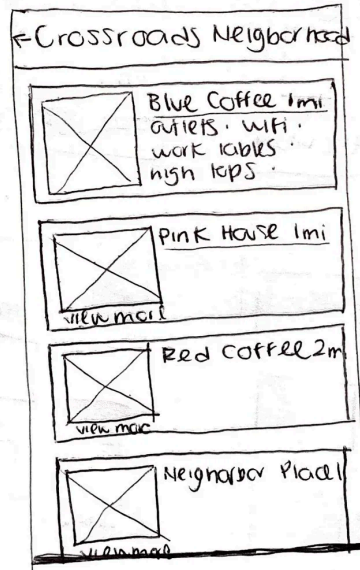 ←Crossroads Neigborhood
Blue Coffee 1mi
outlets · wifi ·
work tables ·
high tops ·
Pink House 1mi
view more
Red Coffee 2m
view more
Neigharbor Place 1
view more